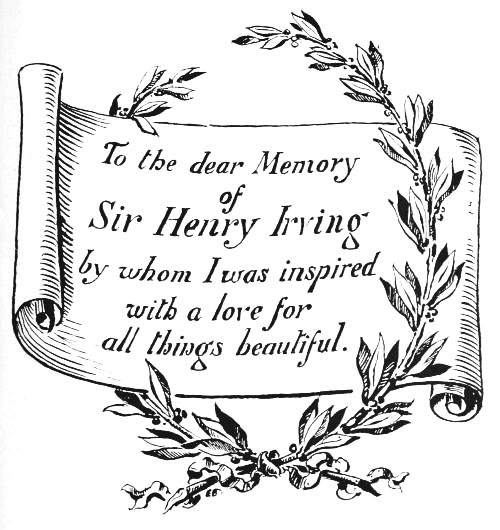 To the dear Memory
of
Sir Henry Irving
by whom I was inspired
with a love for
all things beautiful.
EB